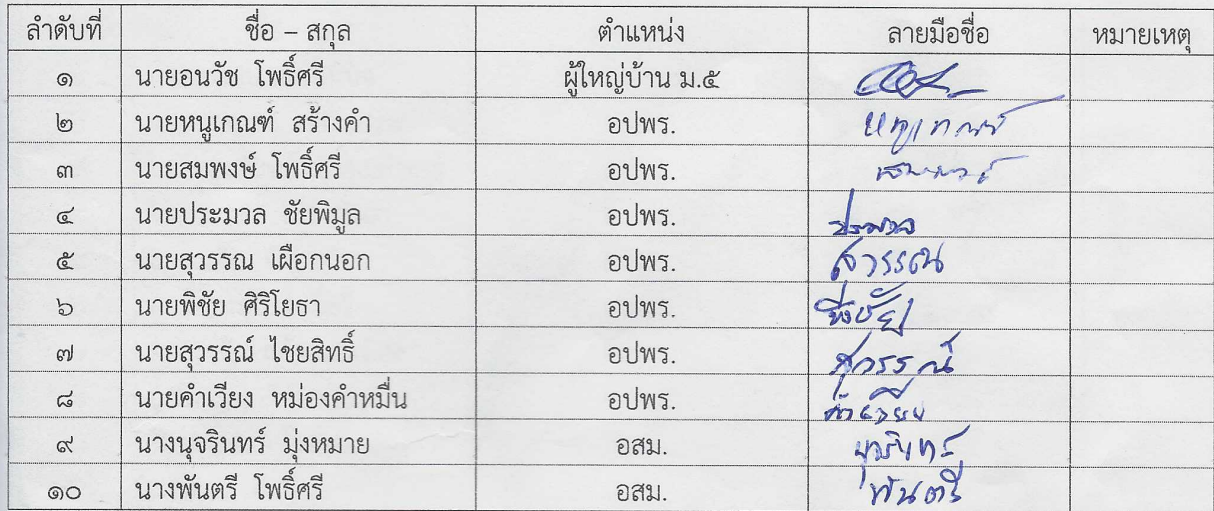 ลำดับที่ ชื่อ – สกุล ตำแหน่ง ลายมือชื่อ หมายเหตุ
๑ นายอนวัช โพธิ์ศรี ผู้ใหญ่บ้าน ม.๕
๒ นายหนูเกณฑ์ สร้างคำ อปพร. หนูเกณฑ์
๓ นายสมพงษ์ โพธิ์ศรี อปพร.
๔ นายประมวล ชัยพิมูล อปพร. ประมวล
๕ นายสุวรรณ เผือกนอก อปพร. สุวรรณ
๖ นายพิชัย ศิริโยธา อปพร. พิชัย
๗ นายสุวรรณ์ ไชยสิทธิ์ อปพร. สุวรรณ์
๘ นายคำเวียง หม่องคำหมื่น อปพร. คำเวียง
๙ นางนุจรินทร์ มุ่งหมาย อสม.
๑๐ นางพันตรี โพธิ์ศรี อสม. พันตรี